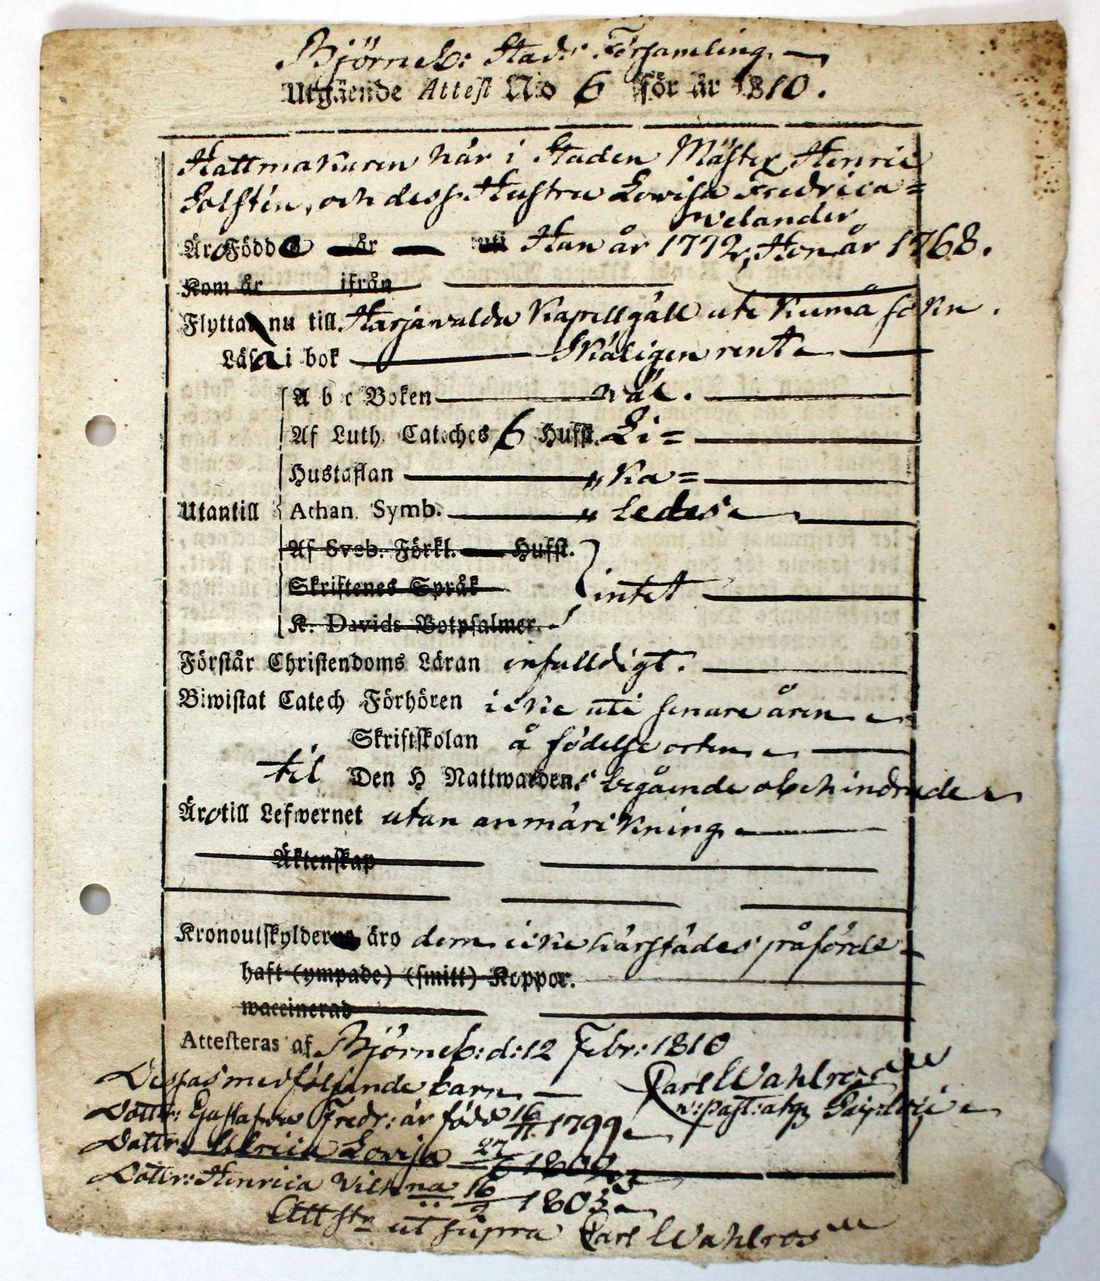 Björneb: Stads Församling
Utgående Attest No 6 för år 1810.
Hattmakaren här i Staden Mäster Henric
Golstén, och dess Hustru Lowisa Fredrica
Welander
Äro Född år Han år 1772, Hon år 1768.
Kom år ifrån
Flytta nu till Harjawalda Kapellgäll uti Kumå sokn.
Läsa i bok Skäligen rent
A b c Boken wäl.
Af Luth. Cateches 6 Hufst. Li=
Hustaflan " ka=
Utantill Athan. Symb. " Ledes
Af Sveb. Förkl. Hufst.
Skriftenes Språk intet
K. Davids Botpsalmer.
Förstår Christendoms Läran enfalldigt.
Biwistat Catech Förhören icke uti senare åren
Skriftskolan å födelse orten
til Den H Nattwardens begående obehindrade
Äro till Lefwernet utan anmärkning
Äktenskap
Kronoutskylderne äro dem icke härstädes påförde
haft (ympade) (smitt) Koppor.
waccinerad
Attesteras af Björneb: d: 12 Febr: 1810
Carl Wahlroos
Dessas medföljande barn
Dottr: Gustafva Fredr: är född 16/11 1799
Dottr: Ulrica Lovisa 27/
Dottr: Henrica Vilhna 16/2 1803
Attsta ut supra Carl Wahlroos